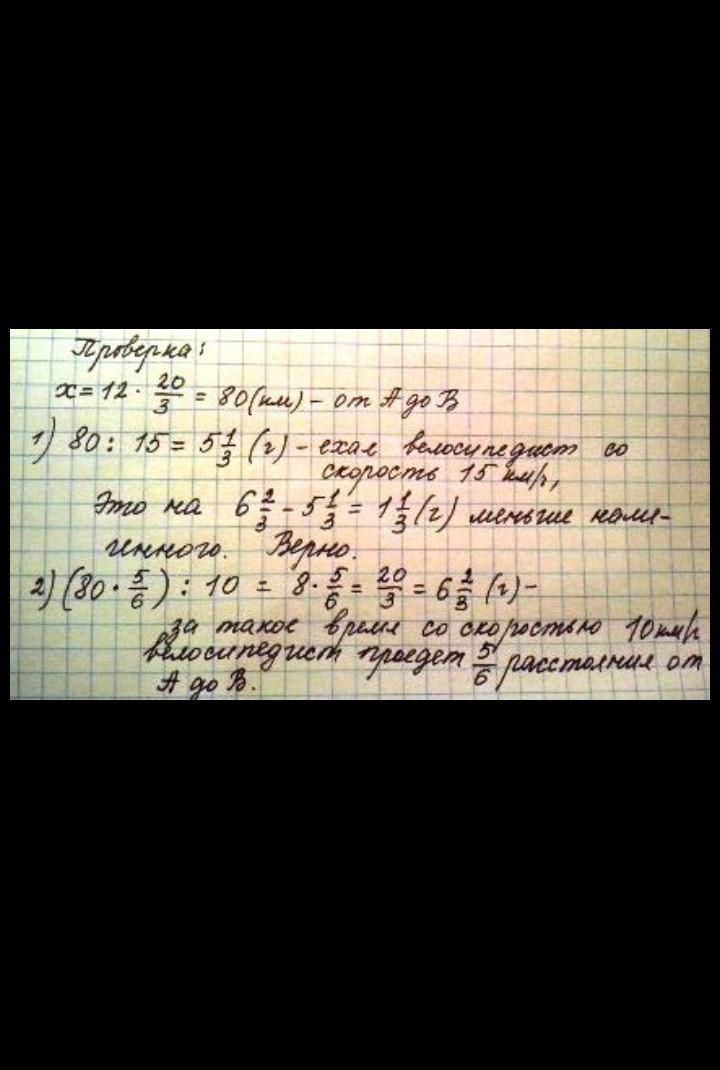 Проверка:
x = 12 · 20/3 = 80 (км) – от А до В
1) 80 : 15 = 5 1/3 (ч) – ехал велосипедист со
скорость 15 км/ч,
Это на 6 2/3 - 5 1/3 = 1 1/3 (ч) меньше наме-
ченного. Верно.
2) (80 · 5/6) : 10 = 8 · 5/6 = 20/3 = 6 2/3 (ч) –
за такое время со скоростью 10 км/ч
велосипедист проедет 5/6 расстояния от
А до В.